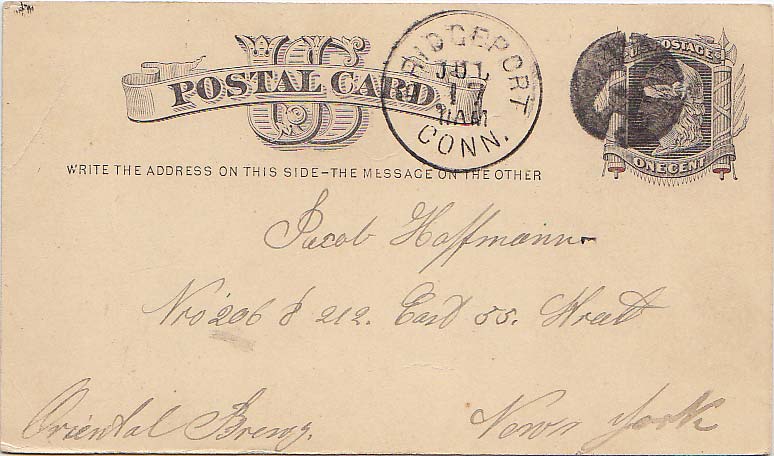 US
POSTAL CARD
BRIDGEPORT
JUL
17
11AM
CONN.
U.S. POSTAGE
ONE CENT
WRITE THE ADDRESS ON THIS SIDE-THE MESSAGE ON THE OTHER
Jacob Hoffmann
Nro 206 & 212. East 55. Street
Oriental Brewg.
New York